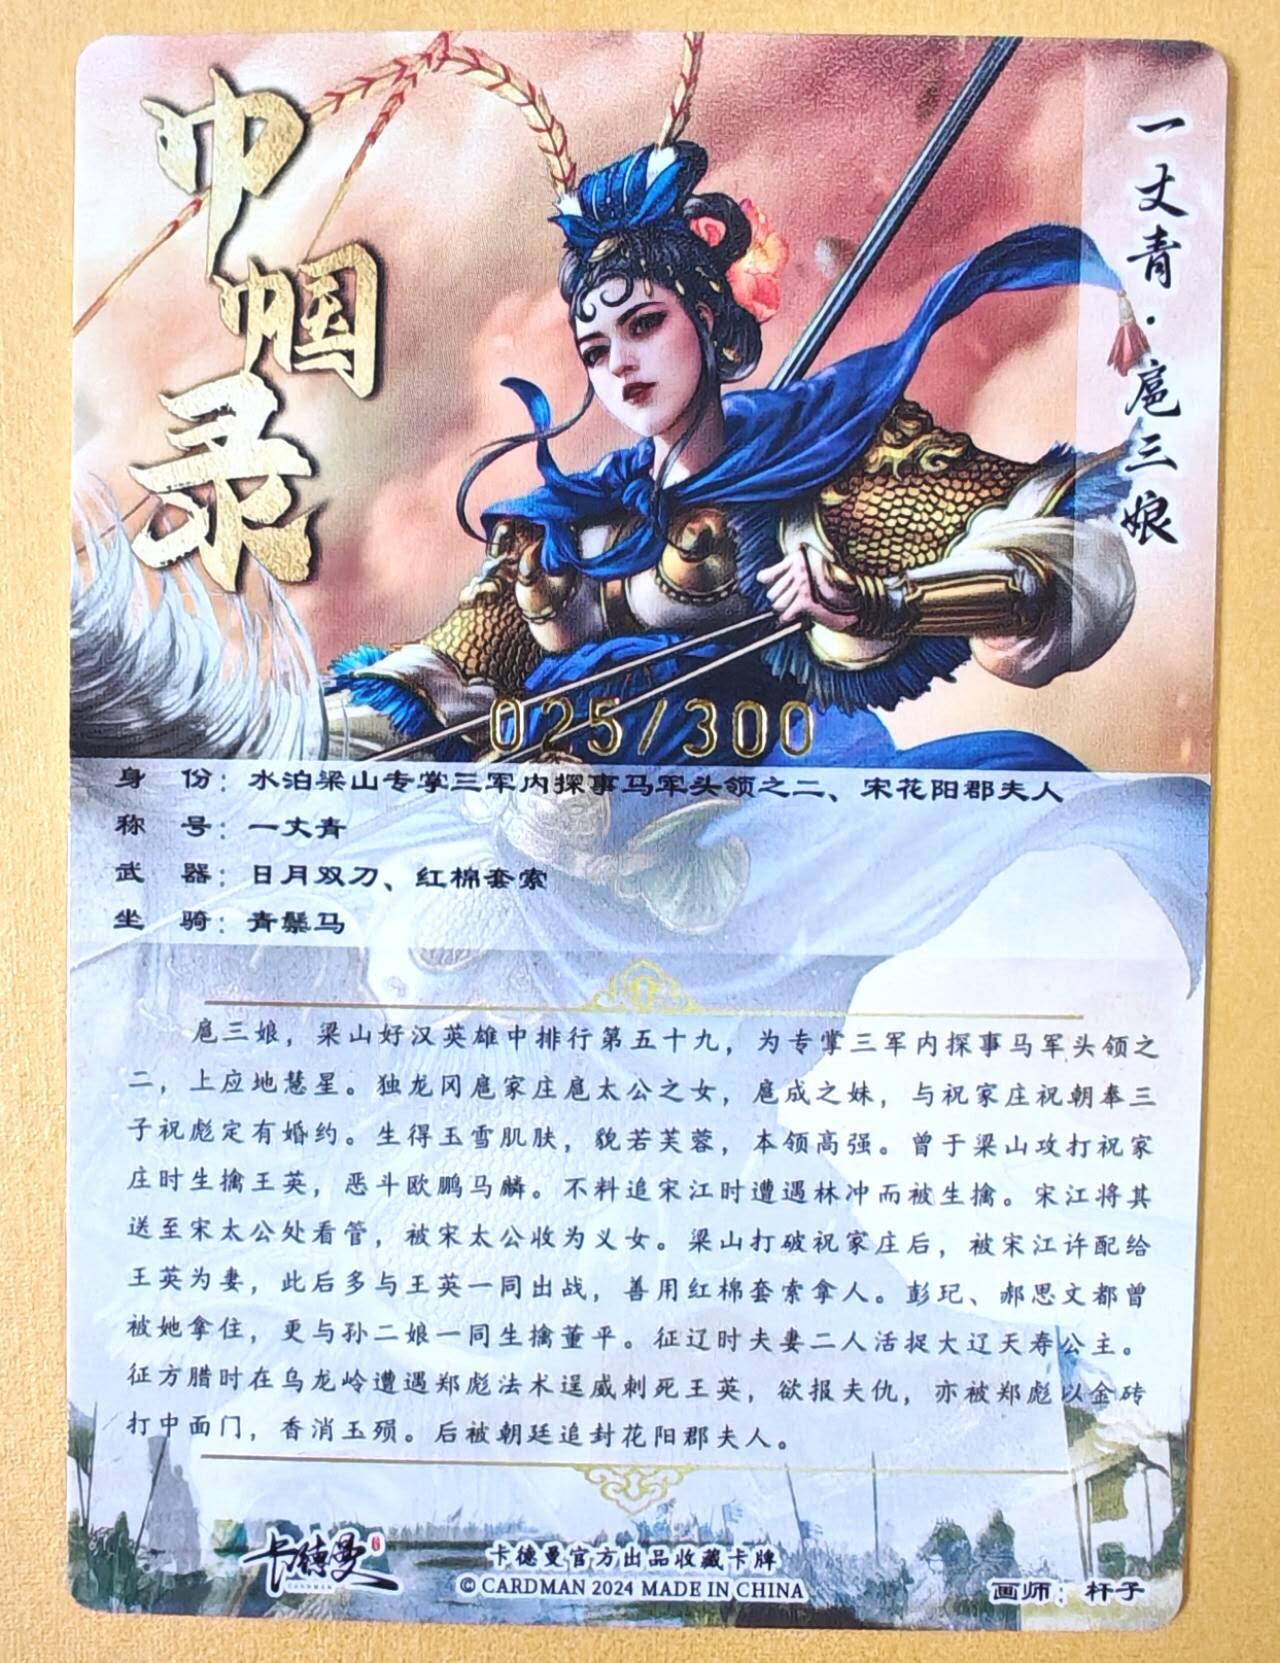 巾帼录
一丈青·扈三娘
025/300
身 份：水泊梁山专掌三军内探事马军头领之二、宋花阳郡夫人
称 号：一丈青
武 器：日月双刀、红棉套索
坐 骑：青鬃马
扈三娘，梁山好汉英雄中排行第五十九，为专掌三军内探事马军头领之
二，上应地慧星。独龙冈扈家庄扈太公之女，扈成之妹，与祝家庄祝朝奉三
子祝彪定有婚约。生得玉雪肌肤，貌若芙蓉，本领高强。曾于梁山攻打祝家
庄时生擒王英，恶斗欧鹏马麟。不料追宋江时遭遇林冲而被生擒。宋江将其
送至宋太公处看管，被宋太公收为义女。梁山打破祝家庄后，被宋江许配给
王英为妻，此后多与王英一同出战，善用红棉套索拿人。彭玘、郝思文都曾
被她拿住，更与孙二娘一同生擒董平。征辽时夫妻二人活捉大辽天寿公主。
征方腊时在乌龙岭遭遇郑彪法术逞威刺死王英，欲报夫仇，亦被郑彪以金砖
打中面门，香消玉殒。后被朝廷追封花阳郡夫人。
卡德曼
CARDMAN
卡德曼官方出品收藏卡牌
© CARDMAN 2024 MADE IN CHINA
画师：杆子